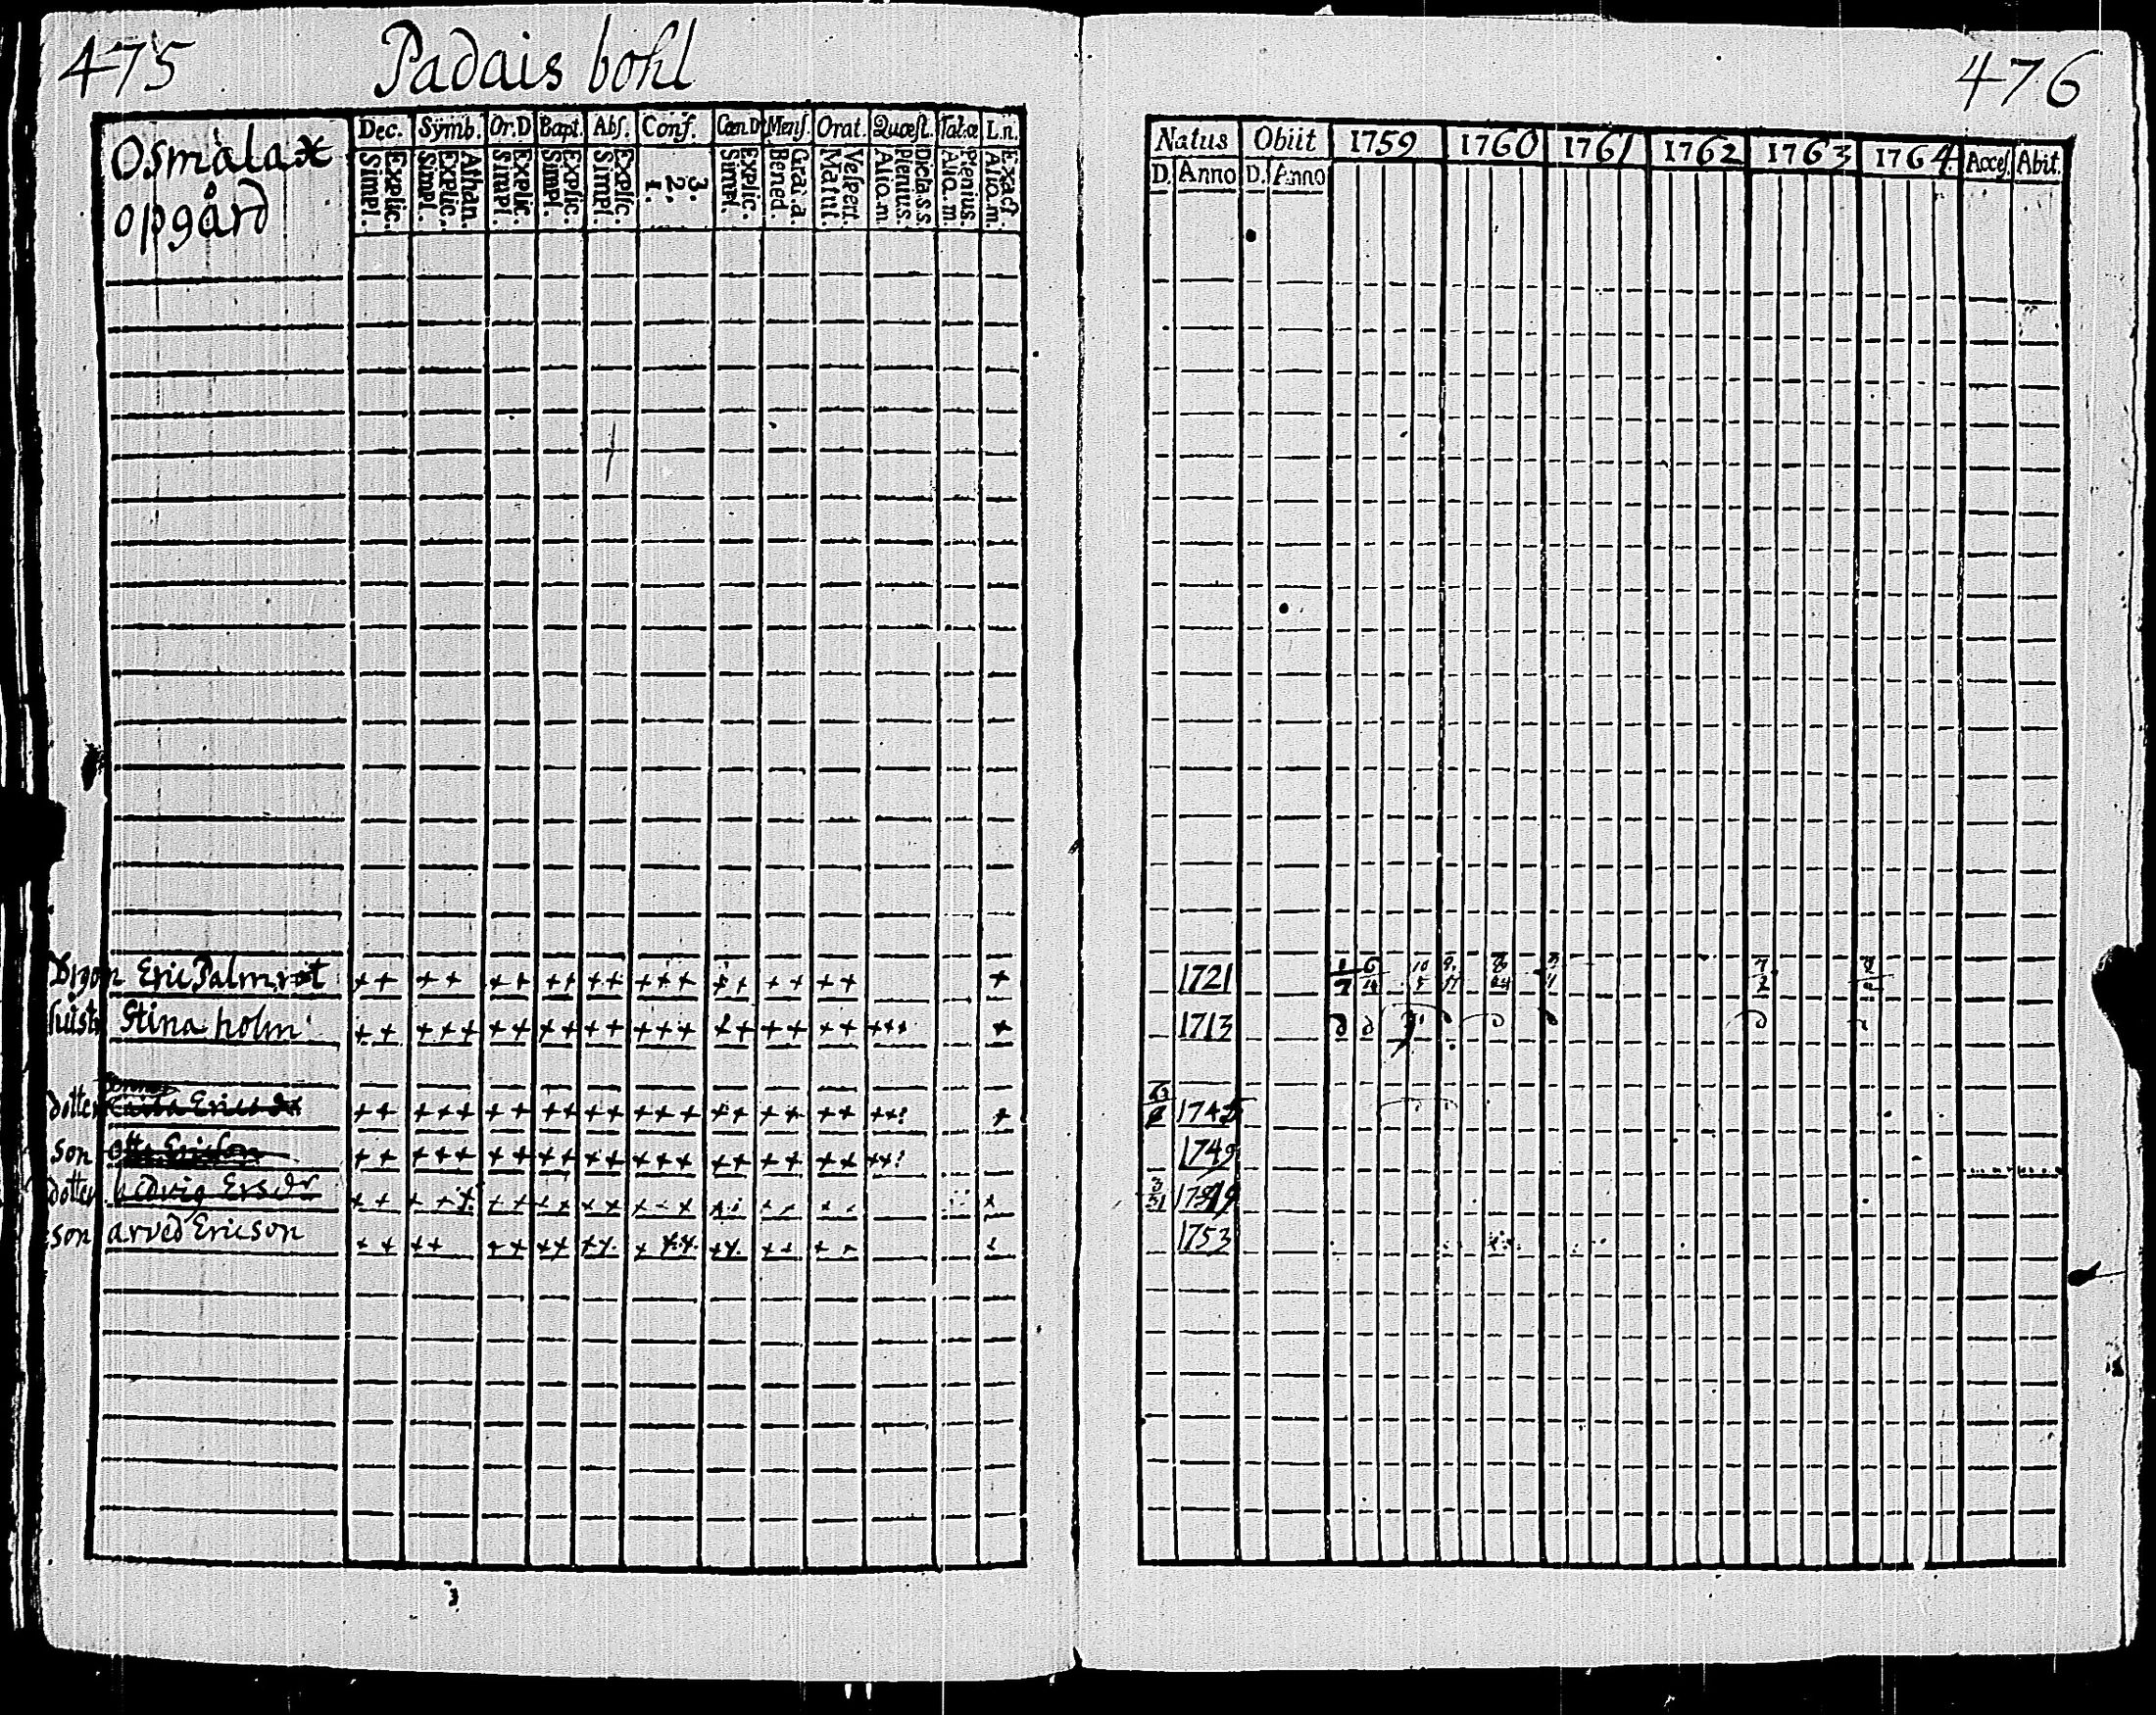 475 Padais bohl
Osmalax
opgård
Dec. Symb. Or.D Bapt. Abs. Conf. Cœn.D Mens. Orat. Quæst. Tab.œ L.n.
Simpl. Explic. Simpl. Explic. Athan. Simpl. Explic. Simpl. Explic. Simpl. Explic. 1. 2. 3. Simpl. Explic. Bened. Gra.a. Matut. Vespert. Aliq.m. Plenius. Dicta.s.s. Aliq.m. Plenius. Aliq.m. Exact.
Eric Palmrot ++ ++ ++ ++ ++ +++ ++ ++ ++ +
hustr Stina holm ++ +++ ++ ++ ++ +++ ++ ++ ++ +++ +
dotter ++ +++ ++ ++ ++ +++ ++ ++ ++ ++: +
son Otto Ericson ++ +++ ++ ++ ++ +++ ++ ++ ++ ++:
dotter hedvig Ersdr ++ +++ ++ ++ ++ +++ ++ ++ ++ +
son arved Ericson ++ ++ ++ ++ ++ +++ ++ ++ ++ +
476
Natus Obiit 1759 1760 1761 1762 1763 1764 Acces. Abit.
D. Anno D. Anno
1721
1713
1749
1753